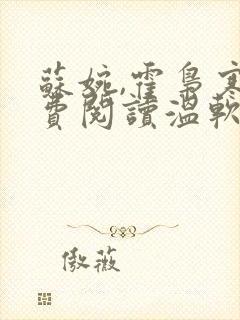 蘇婉,霍梟寒
費閱讀溫軟
傲薇